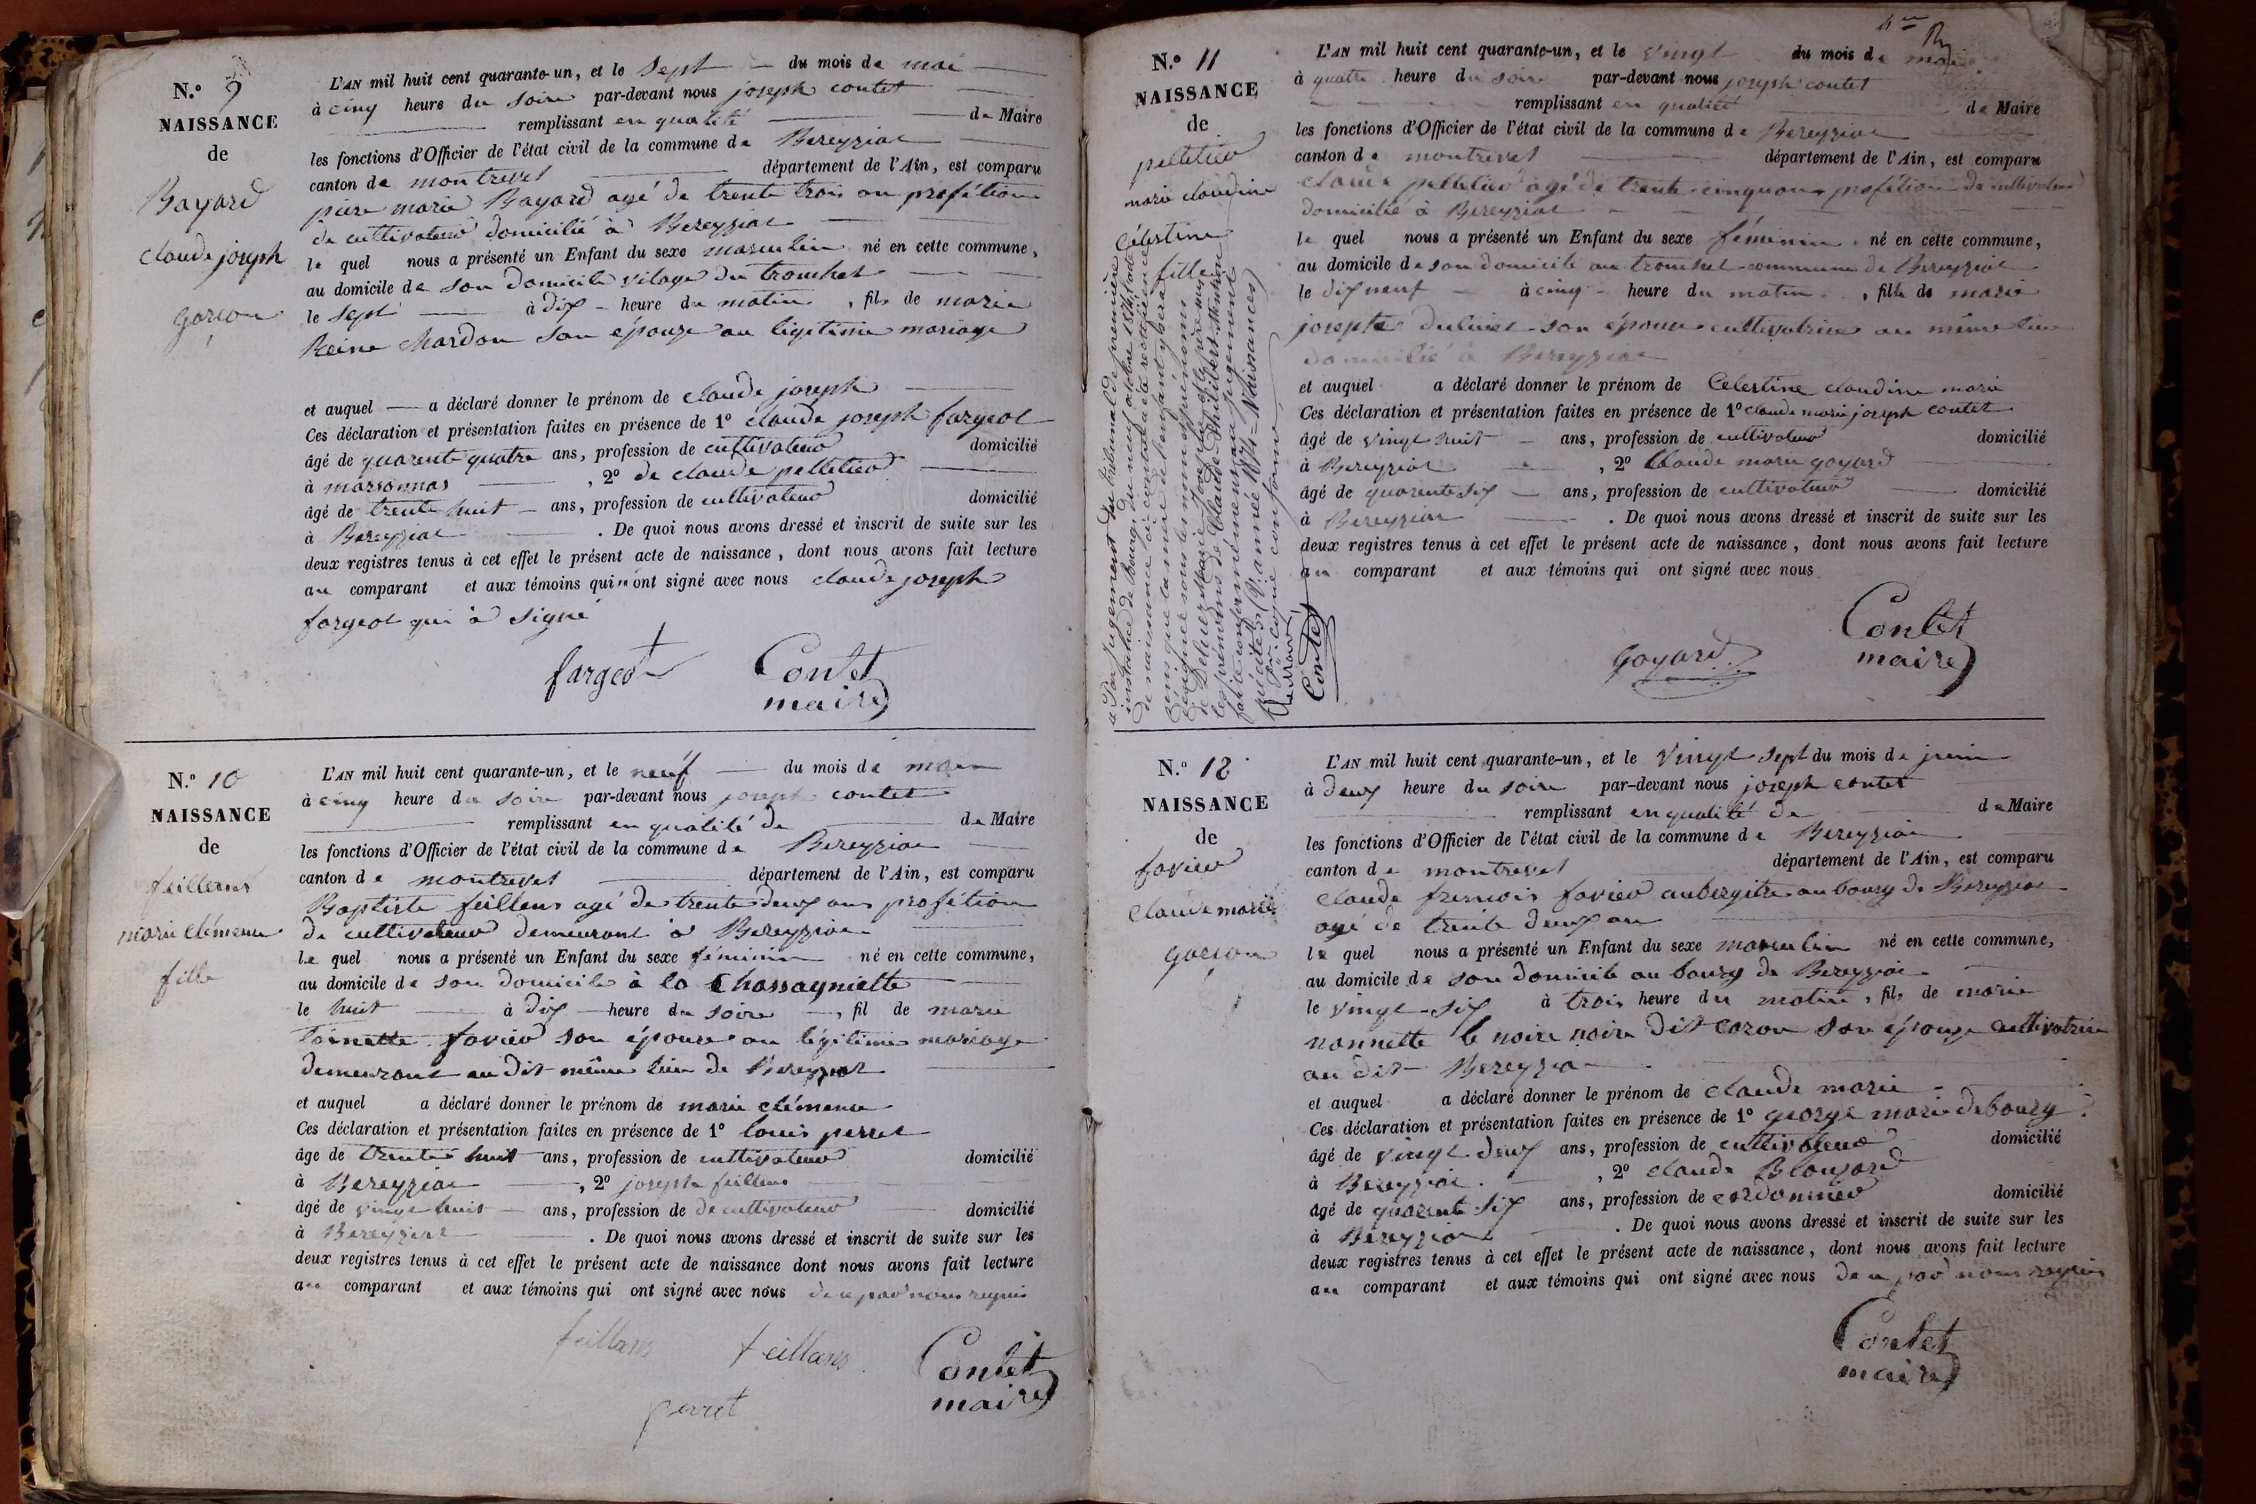 N.º 9
NAISSANCE
de
Bayard
claude joseph
garcon
L'AN mil huit cent quarante-un, et le sept du mois de mai
à cinq heure du soire par-devant nous joseph contet
remplissant en qualité de Maire
les fonctions d'Officier de l'état civil de la commune de Bereyziat
canton de montrevel département de l'Ain, est comparu
piere marie Bayard agé de trente trois an profétion
de cultivateur domicilié à Bereyziat
le quel nous a présenté un Enfant du sexe masculin né en cette commune,
au domicile de son domicile vilage du tronchet
le sept à dix heure du matin, fils de marie
Reine chardon son épouze au légitime mariage
et auquel a déclaré donner le prénom de claude joseph
Ces déclaration et présentation faites en présence de 1º claude joseph fargeot
âgé de quarente quatre ans, profession de cultivateur domicilié
à marsonnas, 2º de claude pelletier
âgé de trente huit ans, profession de cultivateur domicilié
à Bereyziat. De quoi nous avons dressé et inscrit de suite sur les
deux registres tenus à cet effet le présent acte de naissance, dont nous avons fait lecture
au comparant et aux témoins qui n'ont signé avec nous claude joseph
fargeot qui à signé
fargeot
Contet
maire
N.º 10
NAISSANCE
de
feillens
marie clémence
fille
L'AN mil huit cent quarante-un, et le neuf du mois de mai
à cinq heure du soire par-devant nous joseph contet
remplissant en qualité de de Maire
les fonctions d'Officier de l'état civil de la commune de Bereyziat
canton de montrevel département de l'Ain, est comparu
Baptiste feillens agé de trente deux ans profétion
de cultivateur demeurant à Bereyziat
le quel nous a présenté un Enfant du sexe féminin né en cette commune,
au domicile de son domicile à la Chassagniette
le huit à dix heure du soire, fil de marie
toinette favier son épouse au légitime mariage
demeurant au dit même lieu de Bereyziat
et auquel a déclaré donner le prénom de marie clémence
Ces déclaration et présentation faites en présence de 1º louis perret
âge de trente huit ans, profession de cultivateur domicilié
à Bereyziat, 2º joseph feillens
âgé de vingt huit ans, profession de de cultivateur domicilié
à Bereyziat. De quoi nous avons dressé et inscrit de suite sur les
deux registres tenus à cet effet le présent acte de naissance dont nous avons fait lecture
au comparant et aux témoins qui ont signé avec nous de ce par nous requis
feillans feillans
Contet
maire
perret
N.º 11
NAISSANCE
de
pelletier
marie claudine
célestine
fille
L'AN mil huit cent quarante-un, et le vingt du mois de mai
à quatre heure du soire par-devant nous joseph contet
remplissant en qualité de Maire
les fonctions d'Officier de l'état civil de la commune de Bereyziat
canton de montrevel département de l'Ain, est comparu
claude pelletier agé de trente cinq ans profétion de cultivateur
domicilié à Bereyziat
le quel nous a présenté un Enfant du sexe féminin né en cette commune,
au domicile de son domicile au tronchet commune de Bereyziat
le dix neuf à cinq heure du matin, fille de marie
josepte son épouse cultivatrice au même lieu
domicilié à Bereyziat
et auquel a déclaré donner le prénom de Celestine claudine marie
Ces déclaration et présentation faites en présence de 1º claude marie joseph contet
âgé de vingt huit ans, profession de cultivateur domicilié
à Bereyziat, 2º Claude marie goyard
âgé de quarente six ans, profession de cultivateur domicilié
à Bereyziat. De quoi nous avons dressé et inscrit de suite sur les
deux registres tenus à cet effet le présent acte de naissance, dont nous avons fait lecture
au comparant et aux témoins qui ont signé avec nous
Goyard
Contet
maire
Par Jugement du tribunal de première
instance de Bourg du neuf octobre 1874
de naissance ci contre a été rectifié en ce
sens que la mère de l'enfant y sera
désignée sous les nom et prénoms
de Marie Josephte et le père sous
les prénoms de Claude Philibert. Mention
faite conformément au jugement
précité (Vr. année 1874 = Naissances)
Pour copie conforme
Le Maire
Contet
N.º 12
NAISSANCE
de
favier
Claude marie
garcon
L'AN mil huit cent quarante-un, et le vingt sept du mois de juin
à deux heure du soire par-devant nous joseph contet
remplissant en qualité de de Maire
les fonctions d'Officier de l'état civil de la commune de Bereyziat
canton de montrevel département de l'Ain, est comparu
Claude francois favier aubergiste au bourg de Bereyziat
agé de trente deux an
le quel nous a présenté un Enfant du sexe masculin né en cette commune,
au domicile de son domicile au bourg de Bereyziat
le vingt-six à trois heure du matin, fils de marie
nannette le noire noire dit cozon son épouze cultivatrice
au dit Bereyziat
et auquel a déclaré donner le prénom de claude marie
Ces déclaration et présentation faites en présence de 1º george marie debourg
âgé de vingt deux ans, profession de cultivateur domicilié
à Bereyziat, 2º claude Blouzard
âgé de quarente six ans, profession de cordonnier domicilié
à Bereyziat. De quoi nous avons dressé et inscrit de suite sur les
deux registres tenus à cet effet le présent acte de naissance, dont nous avons fait lecture
au comparant et aux témoins qui ont signé avec nous de ce par nous requis
Contet
maire